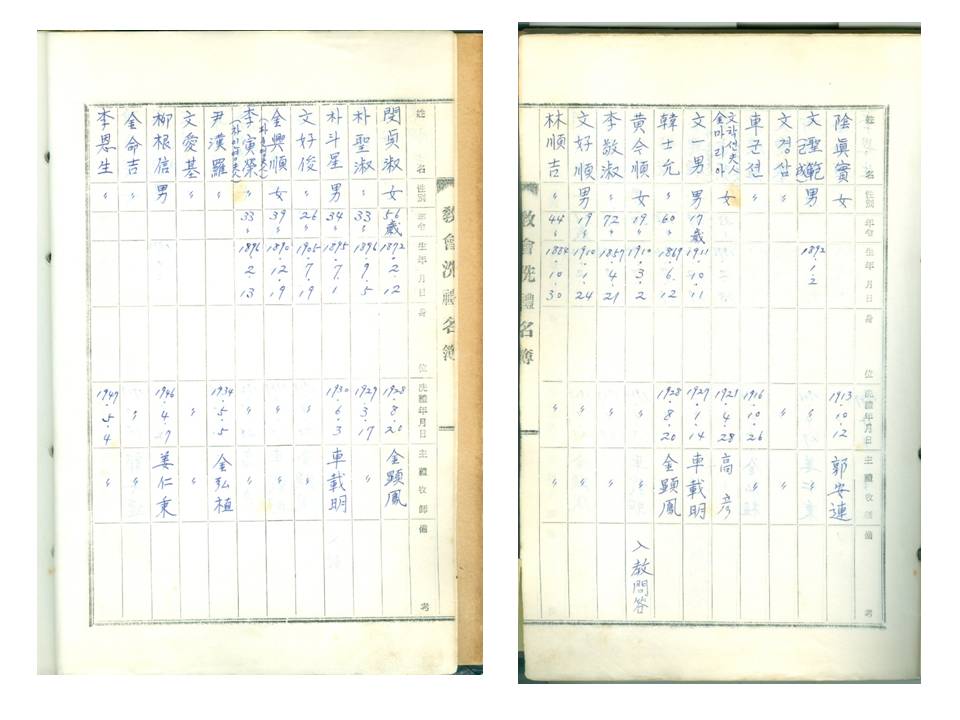 姓名 性別 年令 生年月日 身位 洗禮年月日 主禮牧師 備考
陰眞實 女 1913·10·12 郭安連
文聖範 男 1892·1·2 〃 〃
文경삼 〃 〃 〃
車군션 〃 1916·10·26 〃
文차선夫人 金마리아 女 1921·4·28 高
文一男 男 17歲 1911·10·11 1927·1·14 車載明
韓士允 〃 60〃 1869·6·12 1928·8·20 金顯鳳
黃今順 女 19〃 1910·3·2 〃 〃 入敎問答
李敬淑 〃 72〃 1857·4·21 〃 〃
文好順 男 19〃 1910·10·24 〃 〃
林順吉 〃 44〃 1884·10·30 〃 〃
敎會洗禮名簿
敎會洗禮名簿
姓名 性別 年令 生年月日 身位 洗禮年月日 主禮牧師 備考
閔貞淑 女 56歲 1872·2·12 1928·8·20 金顯鳳
朴聖淑 〃 33〃 1896·9·5 1929·3·17 〃
朴斗星 男 34〃 1895·7·1 1930·6·3 車載明
文好俊 〃 26〃 1905·7·19 〃 〃
金興順 女 39〃 1890·12·19 〃 〃
李寅榮 〃 33〃 1896·2·13 〃 〃
尹漢羅 〃 1934·5·5 金弘植
文愛基 〃 〃 〃
柳根信 男 1946·4·7 姜仁秉
金命吉 〃 〃 〃
李恩生 〃 1947·5·4 〃